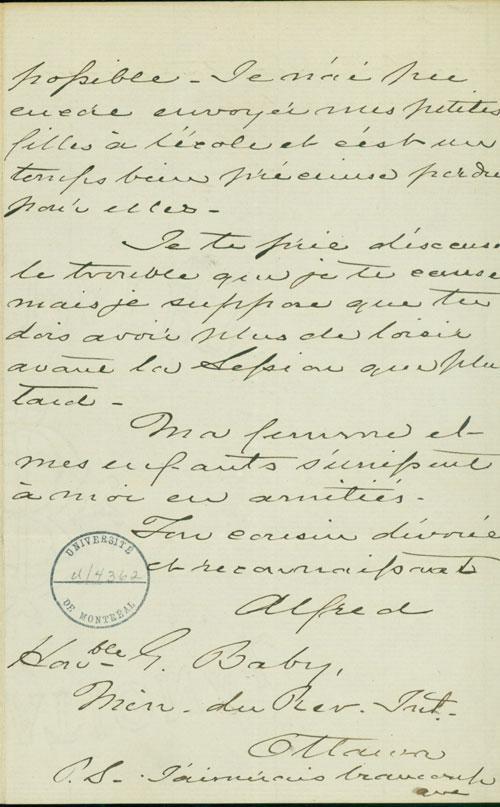 possible - Je n'ai pu
encore envoyer mes petites
filles à l'école et c'est un
temps bien précieuse perdu
pour elles -
Je te prie d'excuser
le trouble que je te cause
mais je suppose que tu
dois avoir plus de loisir
avant la Session que plu
tard -
Ma femme et
mes enfants s'unissent
à moi en amitiés -
Ton cousin dévoué
et reconnaissant
Alfred
UNIVERSITÉ
d/4362
DE MONTRÉAL
Honble G. Baby,
Min. du Rev. Int.
Ottawa
P. S. - J'aimerais beaucoup